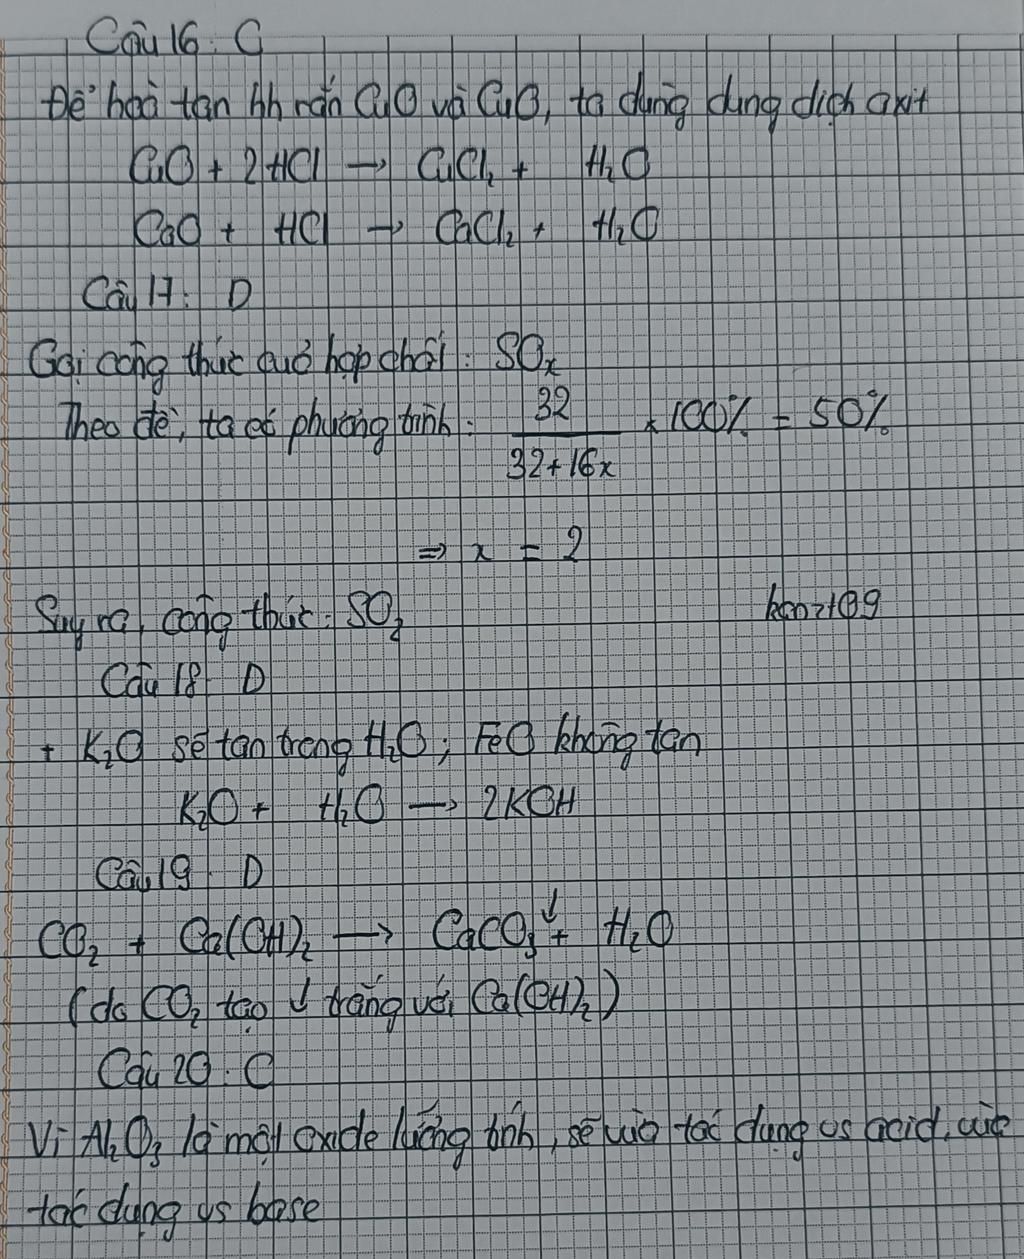 Câu 16: C
Để hoà tan hh rắn CuO và CaO, ta dùng dung dịch axit
CuO + 2HCl → CuCl₂ + H₂O
CaO + HCl → CaCl₂ + H₂O
Câu 17: D
Gọi công thức quả hợp chất: SOₓ
Theo đề, ta có phương trình: 32/(32+16x) × 100% = 50%
⇒ x = 2
Suy ra, công thức: SO₂
Câu 18: D
+ K₂O sẽ tan trong H₂O; FeO không tan
K₂O + H₂O → 2KOH
Câu 19: D
CO₂ + Ca(OH)₂ → CaCO₃↓ + H₂O
(do CO₂ tạo ↓ trắng với Ca(OH)₂)
Câu 20: C
Vì Al₂O₃ là một oxide lưỡng tính, sẽ vừa tác dụng vs acid, vừa
tác dụng vs base